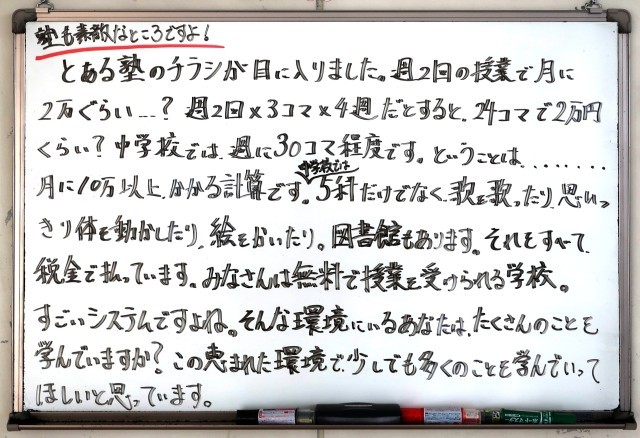 塾も素敵なところですよ!
とある塾のチラシが目に入りました。週2回の授業で月に
2万ぐらい…? 週2回×3コマ×4週だとすると、24コマで2万円
くらい? 中学校では、週に30コマ程度です。ということは………
月に10万以上かかる計算です。中学校では5科だけでなく、歌を歌ったり、思いっ
きり体を動かしたり、絵をかいたり。図書館もあります。それをすべて、
税金で払っています。みなさんは無料で授業を受けられる学校。
すごいシステムですよね。そんな環境にいるあなたは、たくさんのことを
学んでいますか? この恵まれた環境で、少しでも多くのことを学んでいって
ほしいと思っています。